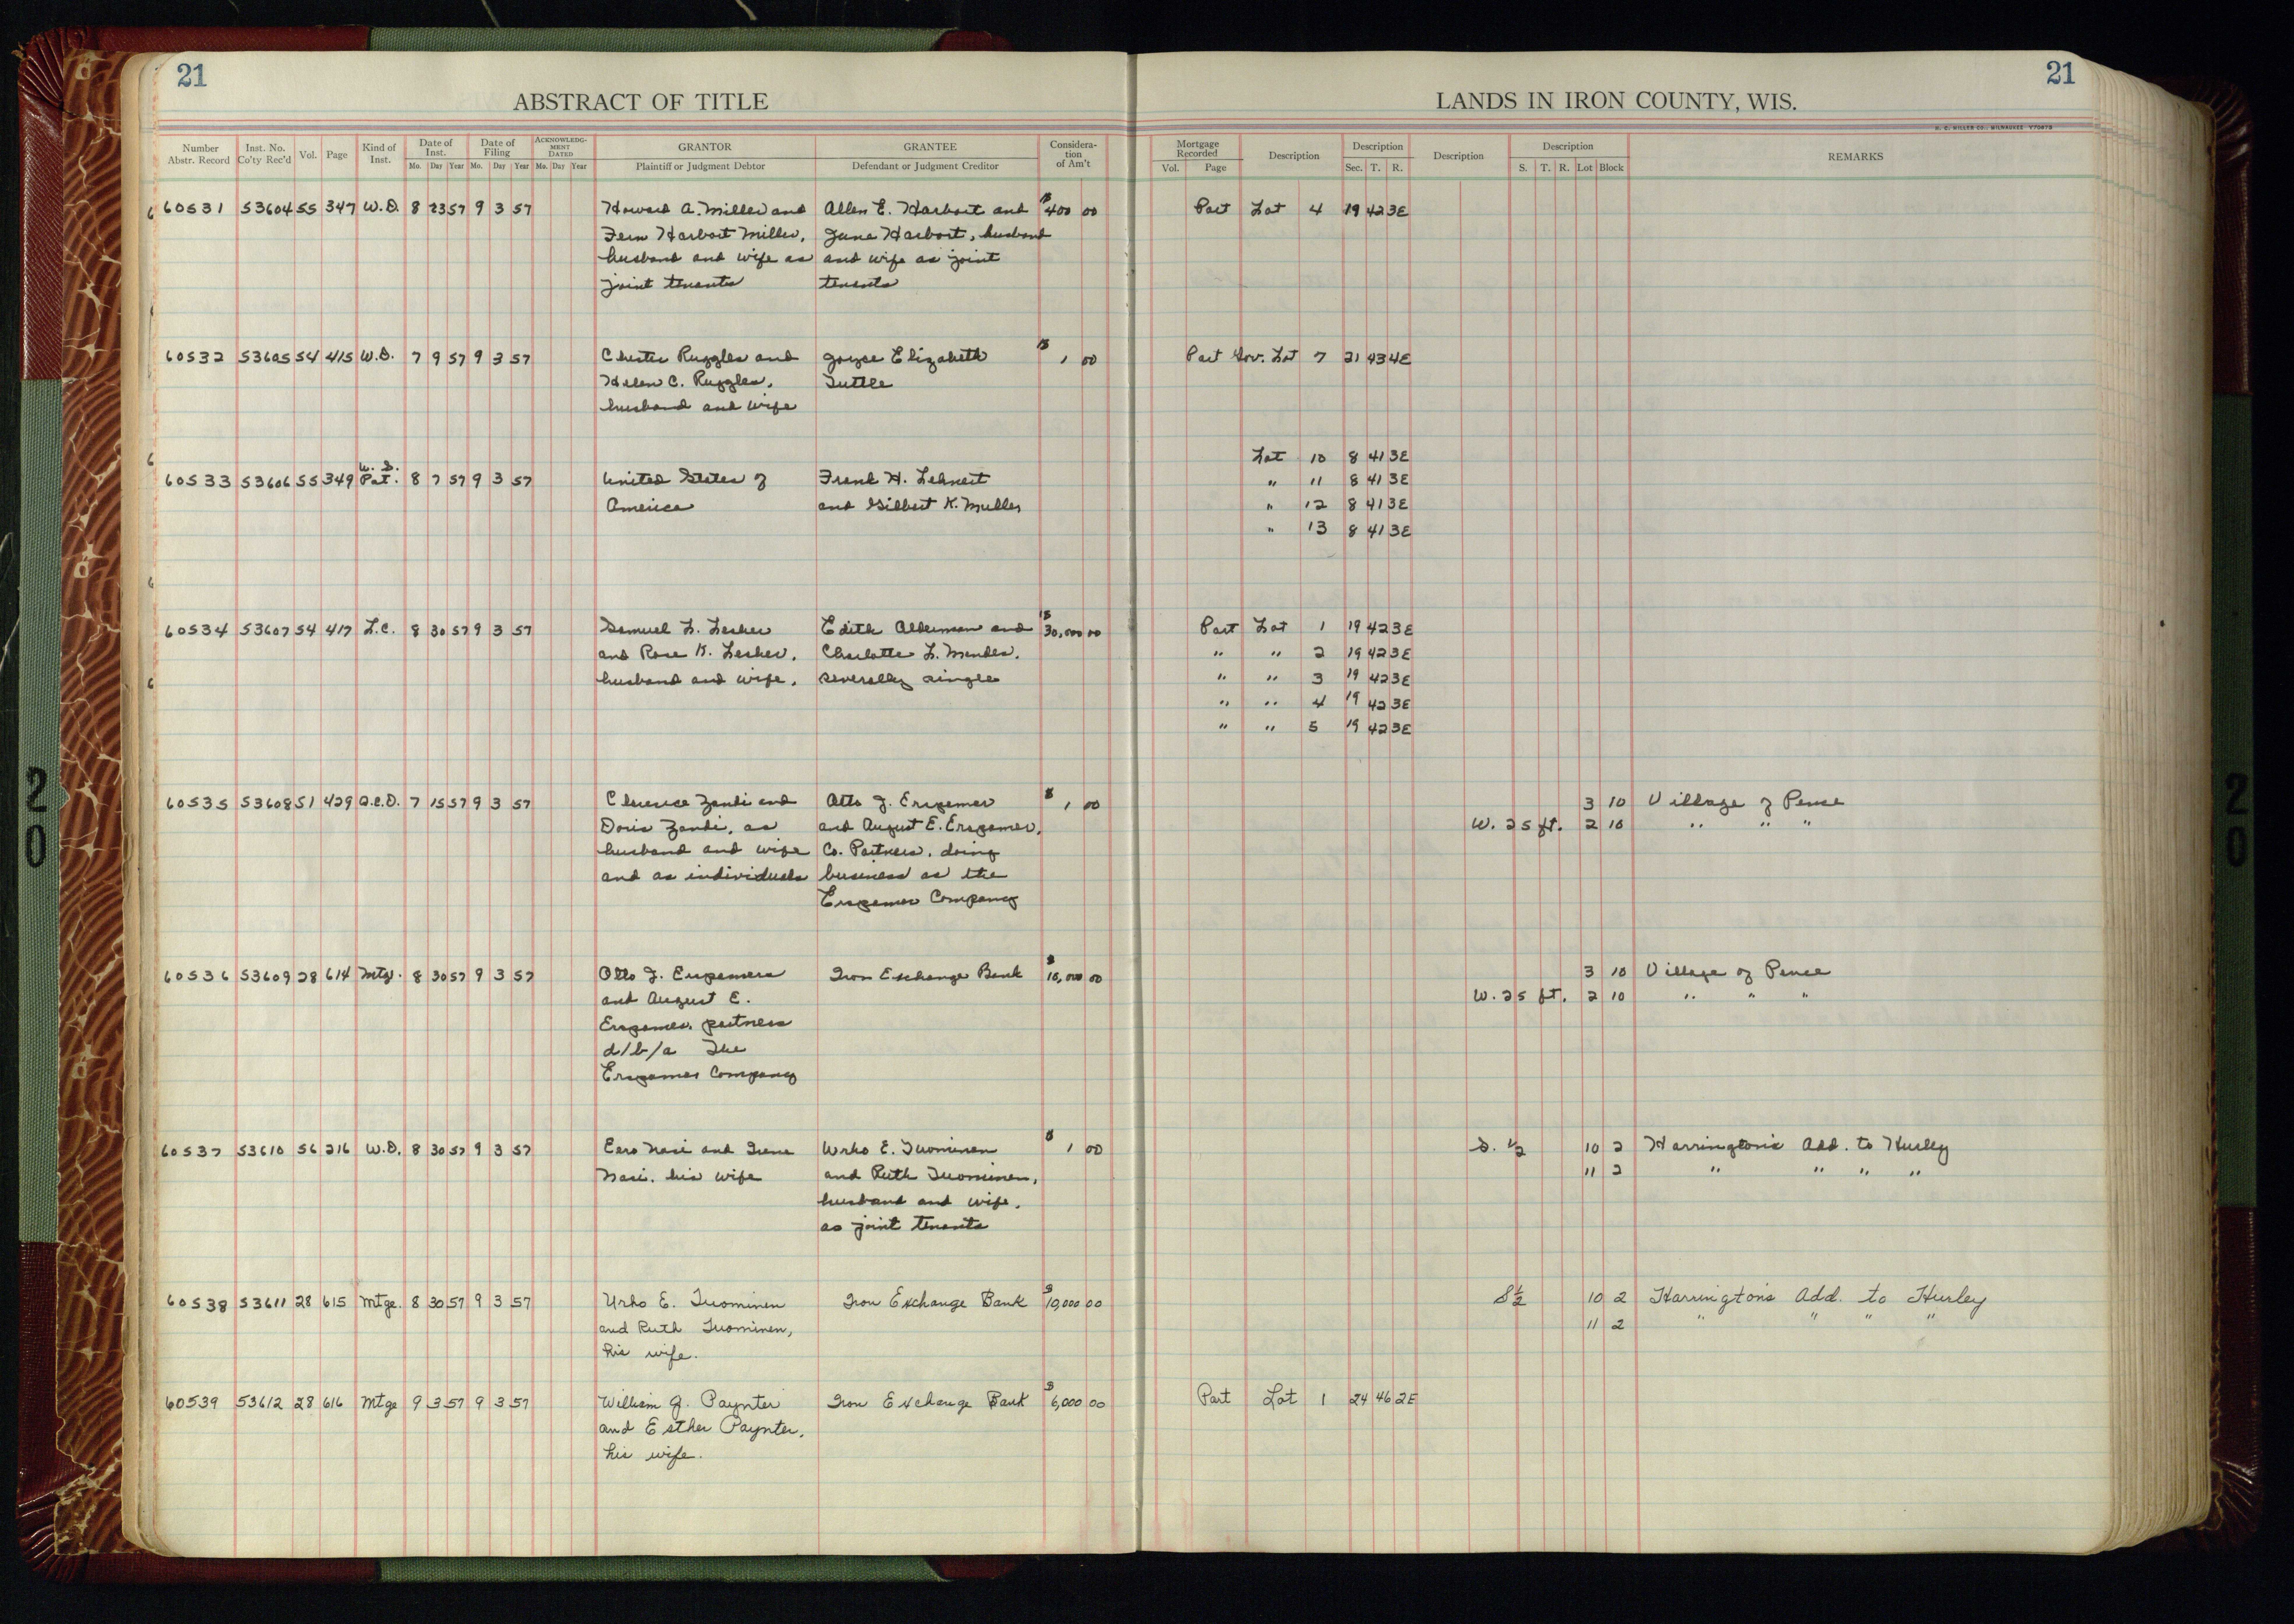 21
21
ABSTRACT OF TITLE
LANDS IN IRON COUNTY, WIS.
H. C. MILLER CO., MILWAUKEE V70673
Number Abstr. Record
Inst. No. Co'ty Rec'd
Vol.
Page
Kind of Inst.
Date of Inst.
Mo. Day Year
Date of Filing
Mo. Day Year
ACKNOWLEDGMENT DATED
Mo. Day Year
GRANTOR
Plaintiff or Judgment Debtor
GRANTEE
Defendant or Judgment Creditor
Consideration of Am't
Mortgage Recorded
Vol. Page
Description
Description
Sec. T. R.
Description
Description
S. T. R. Lot Block
REMARKS
60531 53604 55 347 W.D. 8 23 57 9 3 57 Howard A. Miller and Allen E. Harbort and $400 00 Part Lot 4 19 42 3E
Fern Harbort Miller, Jane Harbort, husband
husband and wife as and wife as joint
joint tenants tenants
60532 53605 54 415 W.D. 7 9 57 9 3 57 Chester Ruggles and Joyce Elizabeth $1 00 Part Gov. Lot 7 21 43 4E
Helen C. Ruggles, Tuttle
husband and wife
Lot 10 8 41 3E
U. S.
60533 53606 55 349 Pat. 8 7 57 9 3 57 United States of Frank H. Lehnert " 11 8 41 3E
America and Gilbert K. Muller " 12 8 41 3E
" 13 8 41 3E
60534 53607 54 417 L.C. 8 30 57 9 3 57 Samuel L. Lesher Edith Alderman and $30,000 00 Part Lot 1 19 42 3E
and Rose K. Lesher, Charlotte L. Mendes, " " 2 19 42 3E
husband and wife, severally single " " 3 19 42 3E
" " 4 19 42 3E
" " 5 19 42 3E
60535 53608 51 429 Q.C.D. 7 15 57 9 3 57 Clarence Zandi and Otto J. Erspamer $1 00 3 10 Village of Pence
Doris Zandi, as and August E. Erspamer, W. 25 ft. 2 10 " " "
husband and wife Co. Partners, doing
and as individuals business as the
Erspamer Company
60536 53609 28 614 Mtg. 8 30 57 9 3 57 Otto J. Erspamer Iron Exchange Bank $10,000 00 3 10 Village of Pence
and August E. W. 25 ft. 2 10 " " "
Erspamer, partners
d/b/a The
Erspamer Company
60537 53610 56 216 W.D. 8 30 57 9 3 57 Eero Nasi and Irene Urho E. Tuominen $1 00 S. 1/2 10 2 Harrington's Add. to Hurley
Nasi, his wife and Ruth Tuominen, 11 2 " " " "
husband and wife,
as joint tenants
60538 53611 28 615 Mtge. 8 30 57 9 3 57 Urho E. Tuominen Iron Exchange Bank $10,000 00 S 1/2 10 2 Harrington's Add. to Hurley
and Ruth Tuominen, 11 2 " " " "
his wife.
60539 53612 28 616 Mtge 9 3 57 9 3 57 William J. Paynter Iron Exchange Bank $6,000 00 Part Lot 1 24 46 2E
and Esther Paynter,
his wife.
20
20